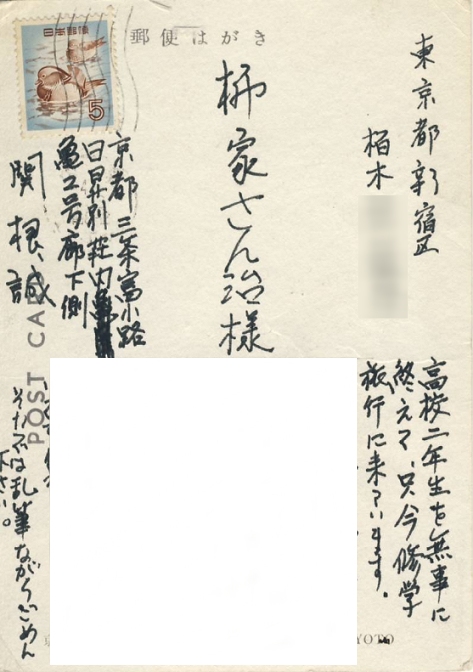 日本郵便
5
郵便はがき
東京都新宿区
柏木
柳家さん治様
京都三条富小路
日昇別荘内
亀二号廊下側
関根、誠
POST CARD
高校二年生を無事に
終えて、只今修学
旅行に来ています。
それでは乱筆ながらごめん
下さい。
YOTO